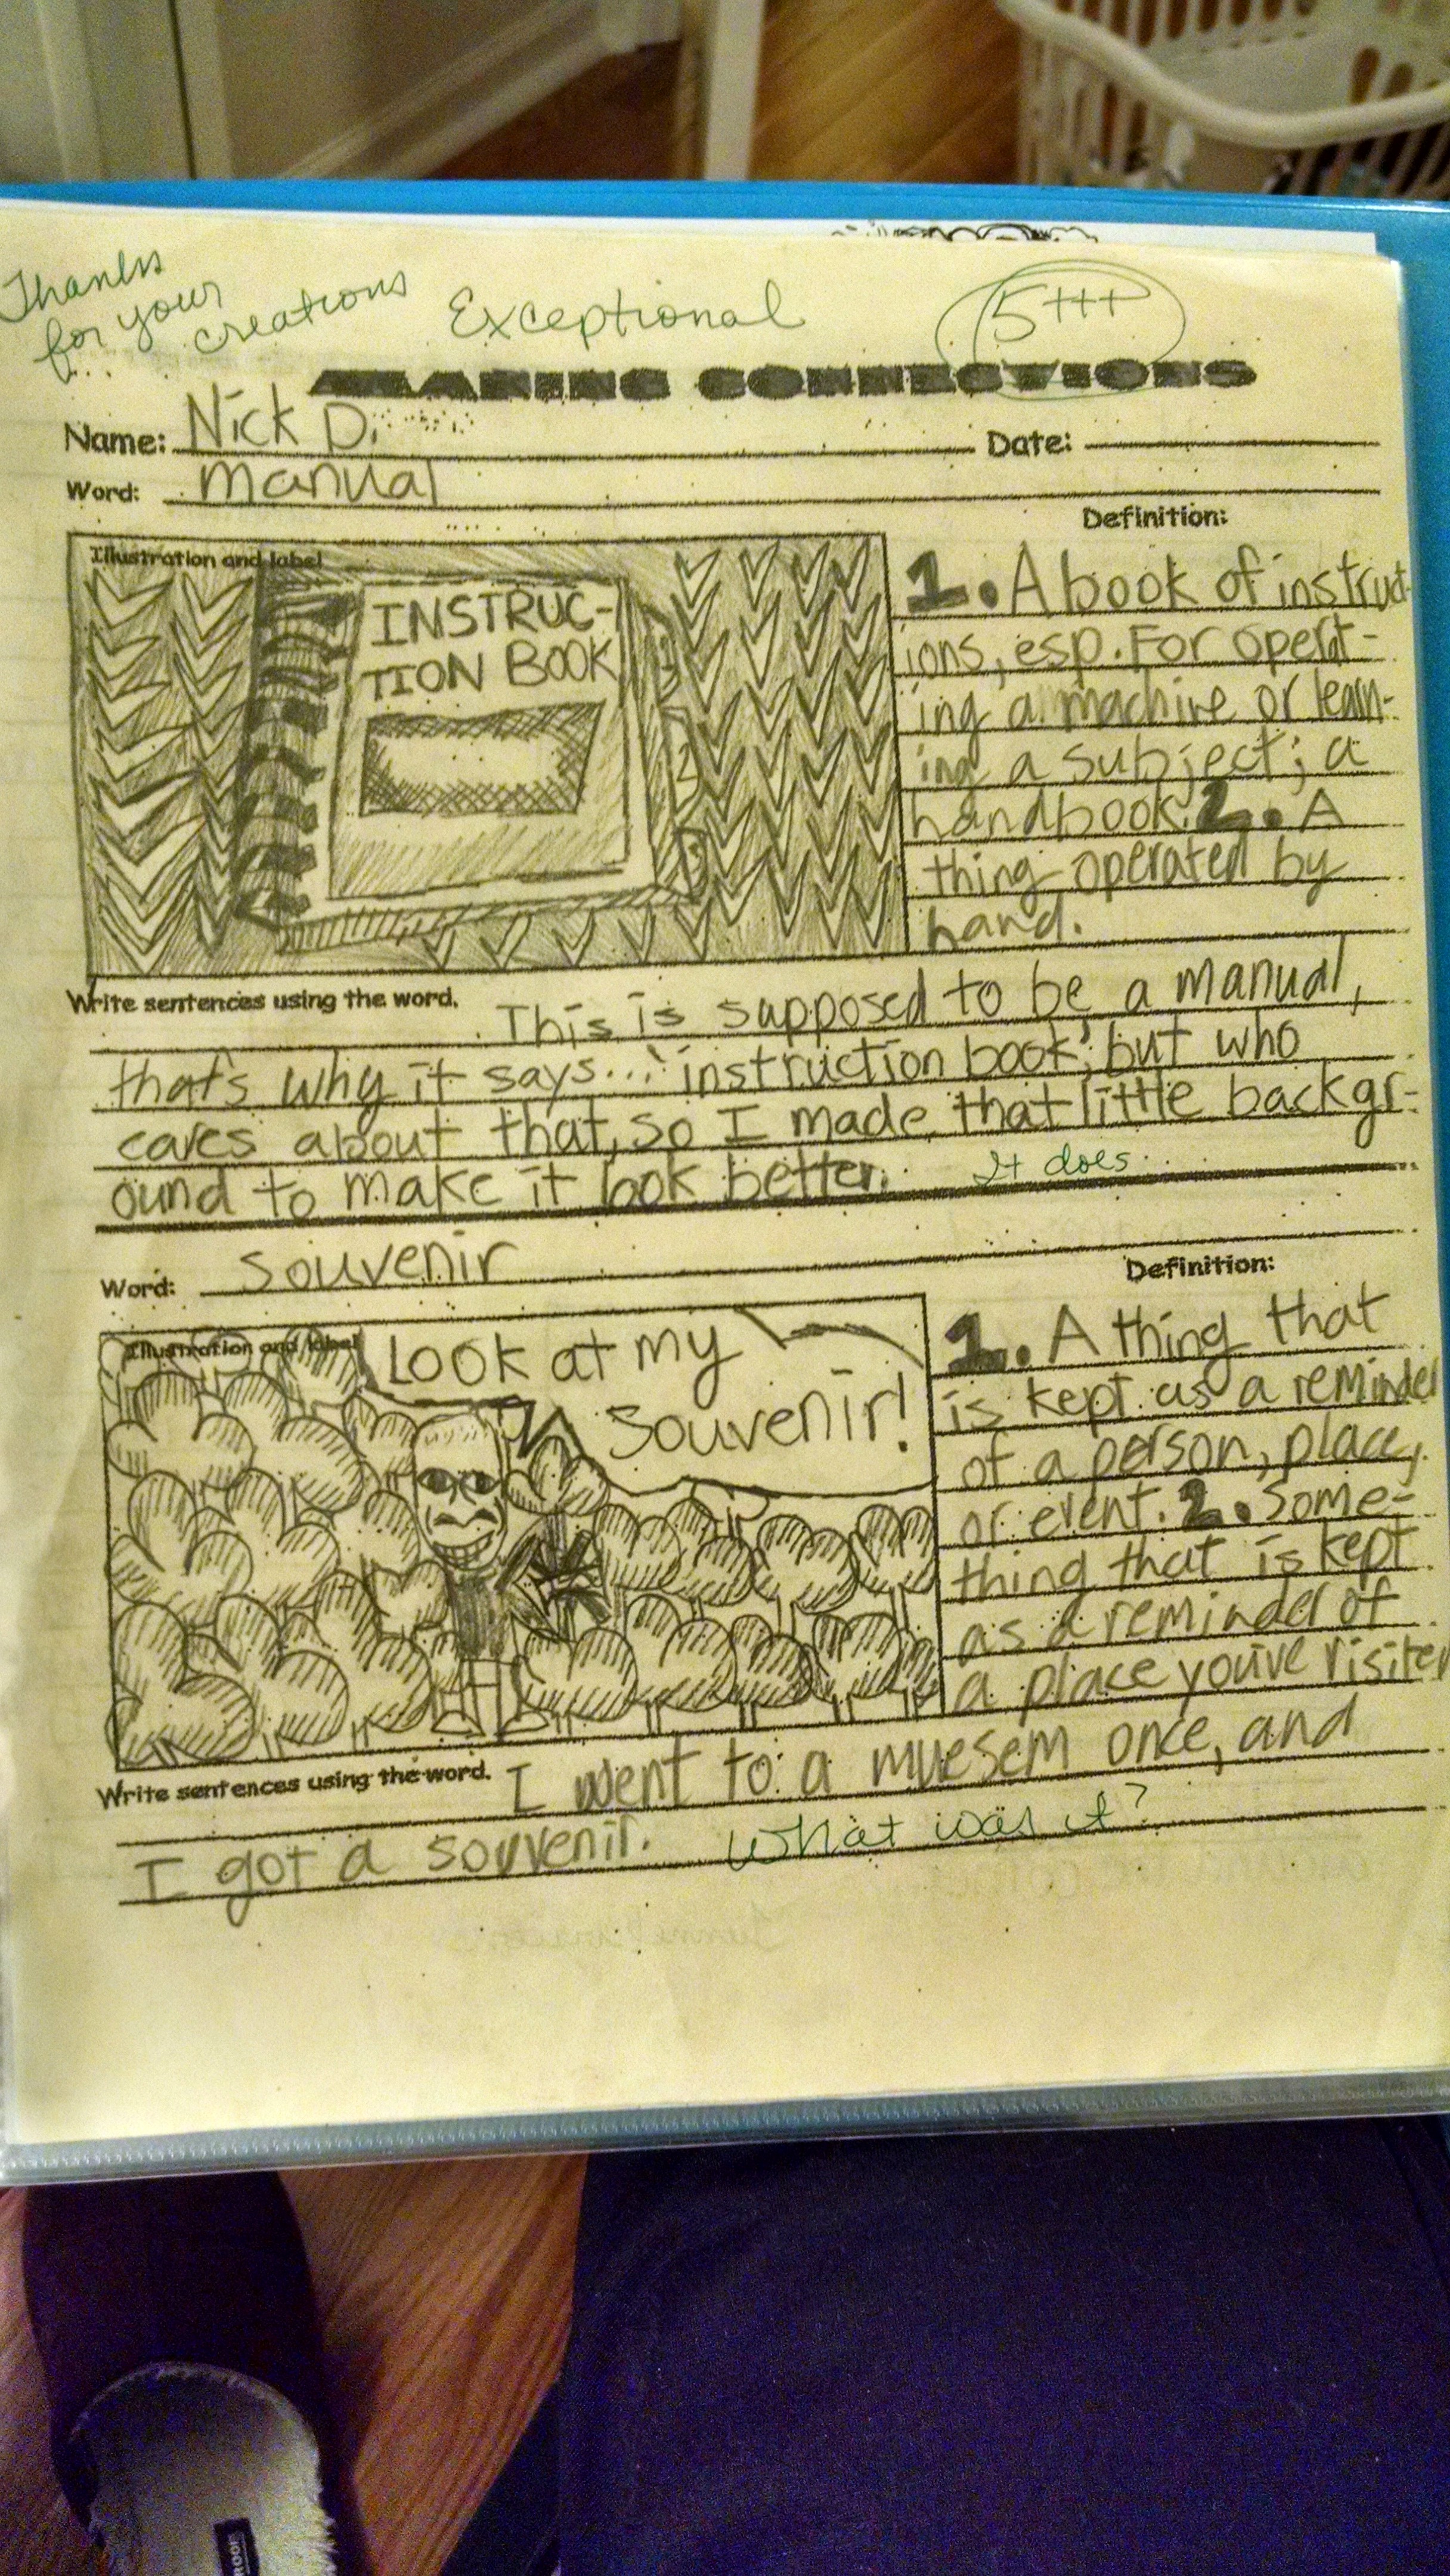 Thanks
for your
creations
Exceptional
5+++
MAKING CONNECTIONS
Name: Nick D.
Date:
Word: manual
Definition:
Illustration and label
INSTRUC-
TION BOOK
1
2
3
1. A book of instruct-
ions, esp. For operat-
ing a machine or learn-
ing a subject; a
handbook. 2. A
thing operated by
hand.
Write sentences using the word. This is supposed to be a manual,
that's why it says... "instruction book", but who
cares about that, so I made that little backgr-
ound to make it look better. It does
Word: souvenir
Definition:
Illustration and label
Look at my
souvenir!
1. A thing that
is kept as a reminder
of a person, place,
or event. 2. Some-
thing that is kept
as a reminder of
a place you've visited
Write sentences using the word. I went to a muesem once, and
I got a souvenir. What was it?